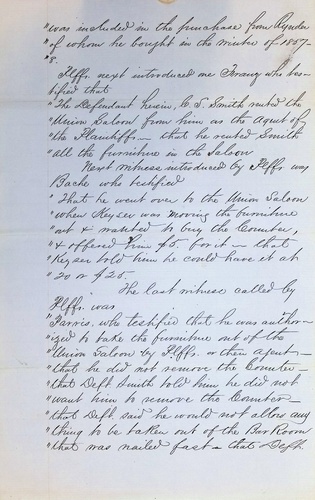 "was included in the purchase from Rynder
"of whom he bought in the winter of 1857-
"8.
Plffs. next introduced one Tracy who tes-
tified that
"The Defendant herein, C. S. Smith rented the
"Union Saloon from him as the Agent of
"the Plaintiffs — that he rented Smith
"all the furniture in the Saloon
Next witness introduced by Plffs was
Bache who testified
"That he went over to the Union Saloon
"when Keyser was moving the furniture
"out & wanted to buy the Counter,
"& offered him $5. for it — that
"Keyser told him he could have it at
"20 or $25.
The last witness called by
Plffs. was
"Farris, who testified that he was author-
"ized to take the furniture out of the
"Union Saloon by Plffs. or their agent, —
"that he did not remove the Counter —
"that Deft. Smith told him he did not
"want him to remove the Counter —
"that Deft. said he would not allow any
"thing to be taken out of the Bar Room
"that was nailed fast — that Deft.